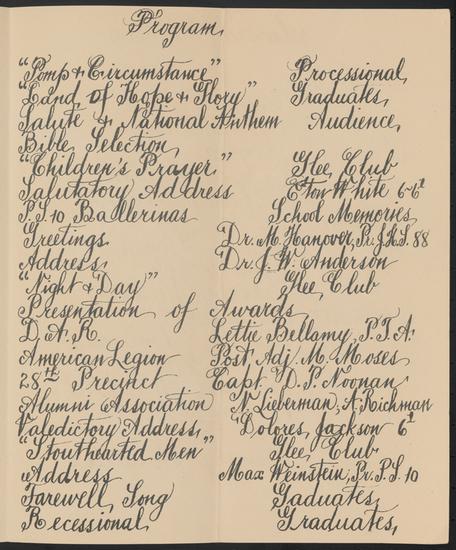 Program
"Pomp & Circumstance" Processional
"Land of Hope & Glory" Graduates
Salute & National Anthem Audience
Bible Selection
"Children's Prayer" Glee Club
Salutatory Address Eton White 6-6¹
P.S. 10 Ballerinas School Memories
Greetings Dr. M. Hanover, Pr. J.H.S. 88
Address Dr. J. W. Anderson
"Night & Day" Glee Club
Presentation of Awards
D. A. R. Lettie Bellamy, P.T.A.
American Legion Post Adj. M. Moses
28th Precinct Capt. D. P. Noonan
Alumni Association N. Lieberman, A. Richman
Valedictory Address Dolores Jackson 6¹
"Stouthearted Men" Glee Club
Address Max Weinstein, Pr. P.S. 10
Farewell Song Gaduates
Recessional Graduates